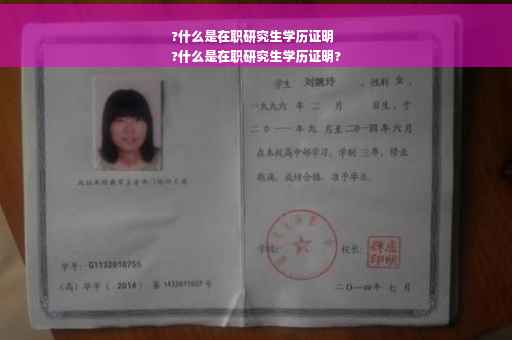 ?什么是在职研究生学历证明
?什么是在职研究生学历证明?
学生 刘婉玲 ，性别 女 ，
一九九六 年 二 月 日生，于
二〇一一年九 月至二〇一四年六月
在本校高中部学习，学制 三年，修业
期满，成绩合格，准予毕业。
学校： 校长：
学号：G1132010755
（高）毕字（ 2014 ）第 1432011027 号
二〇一四年 七 月